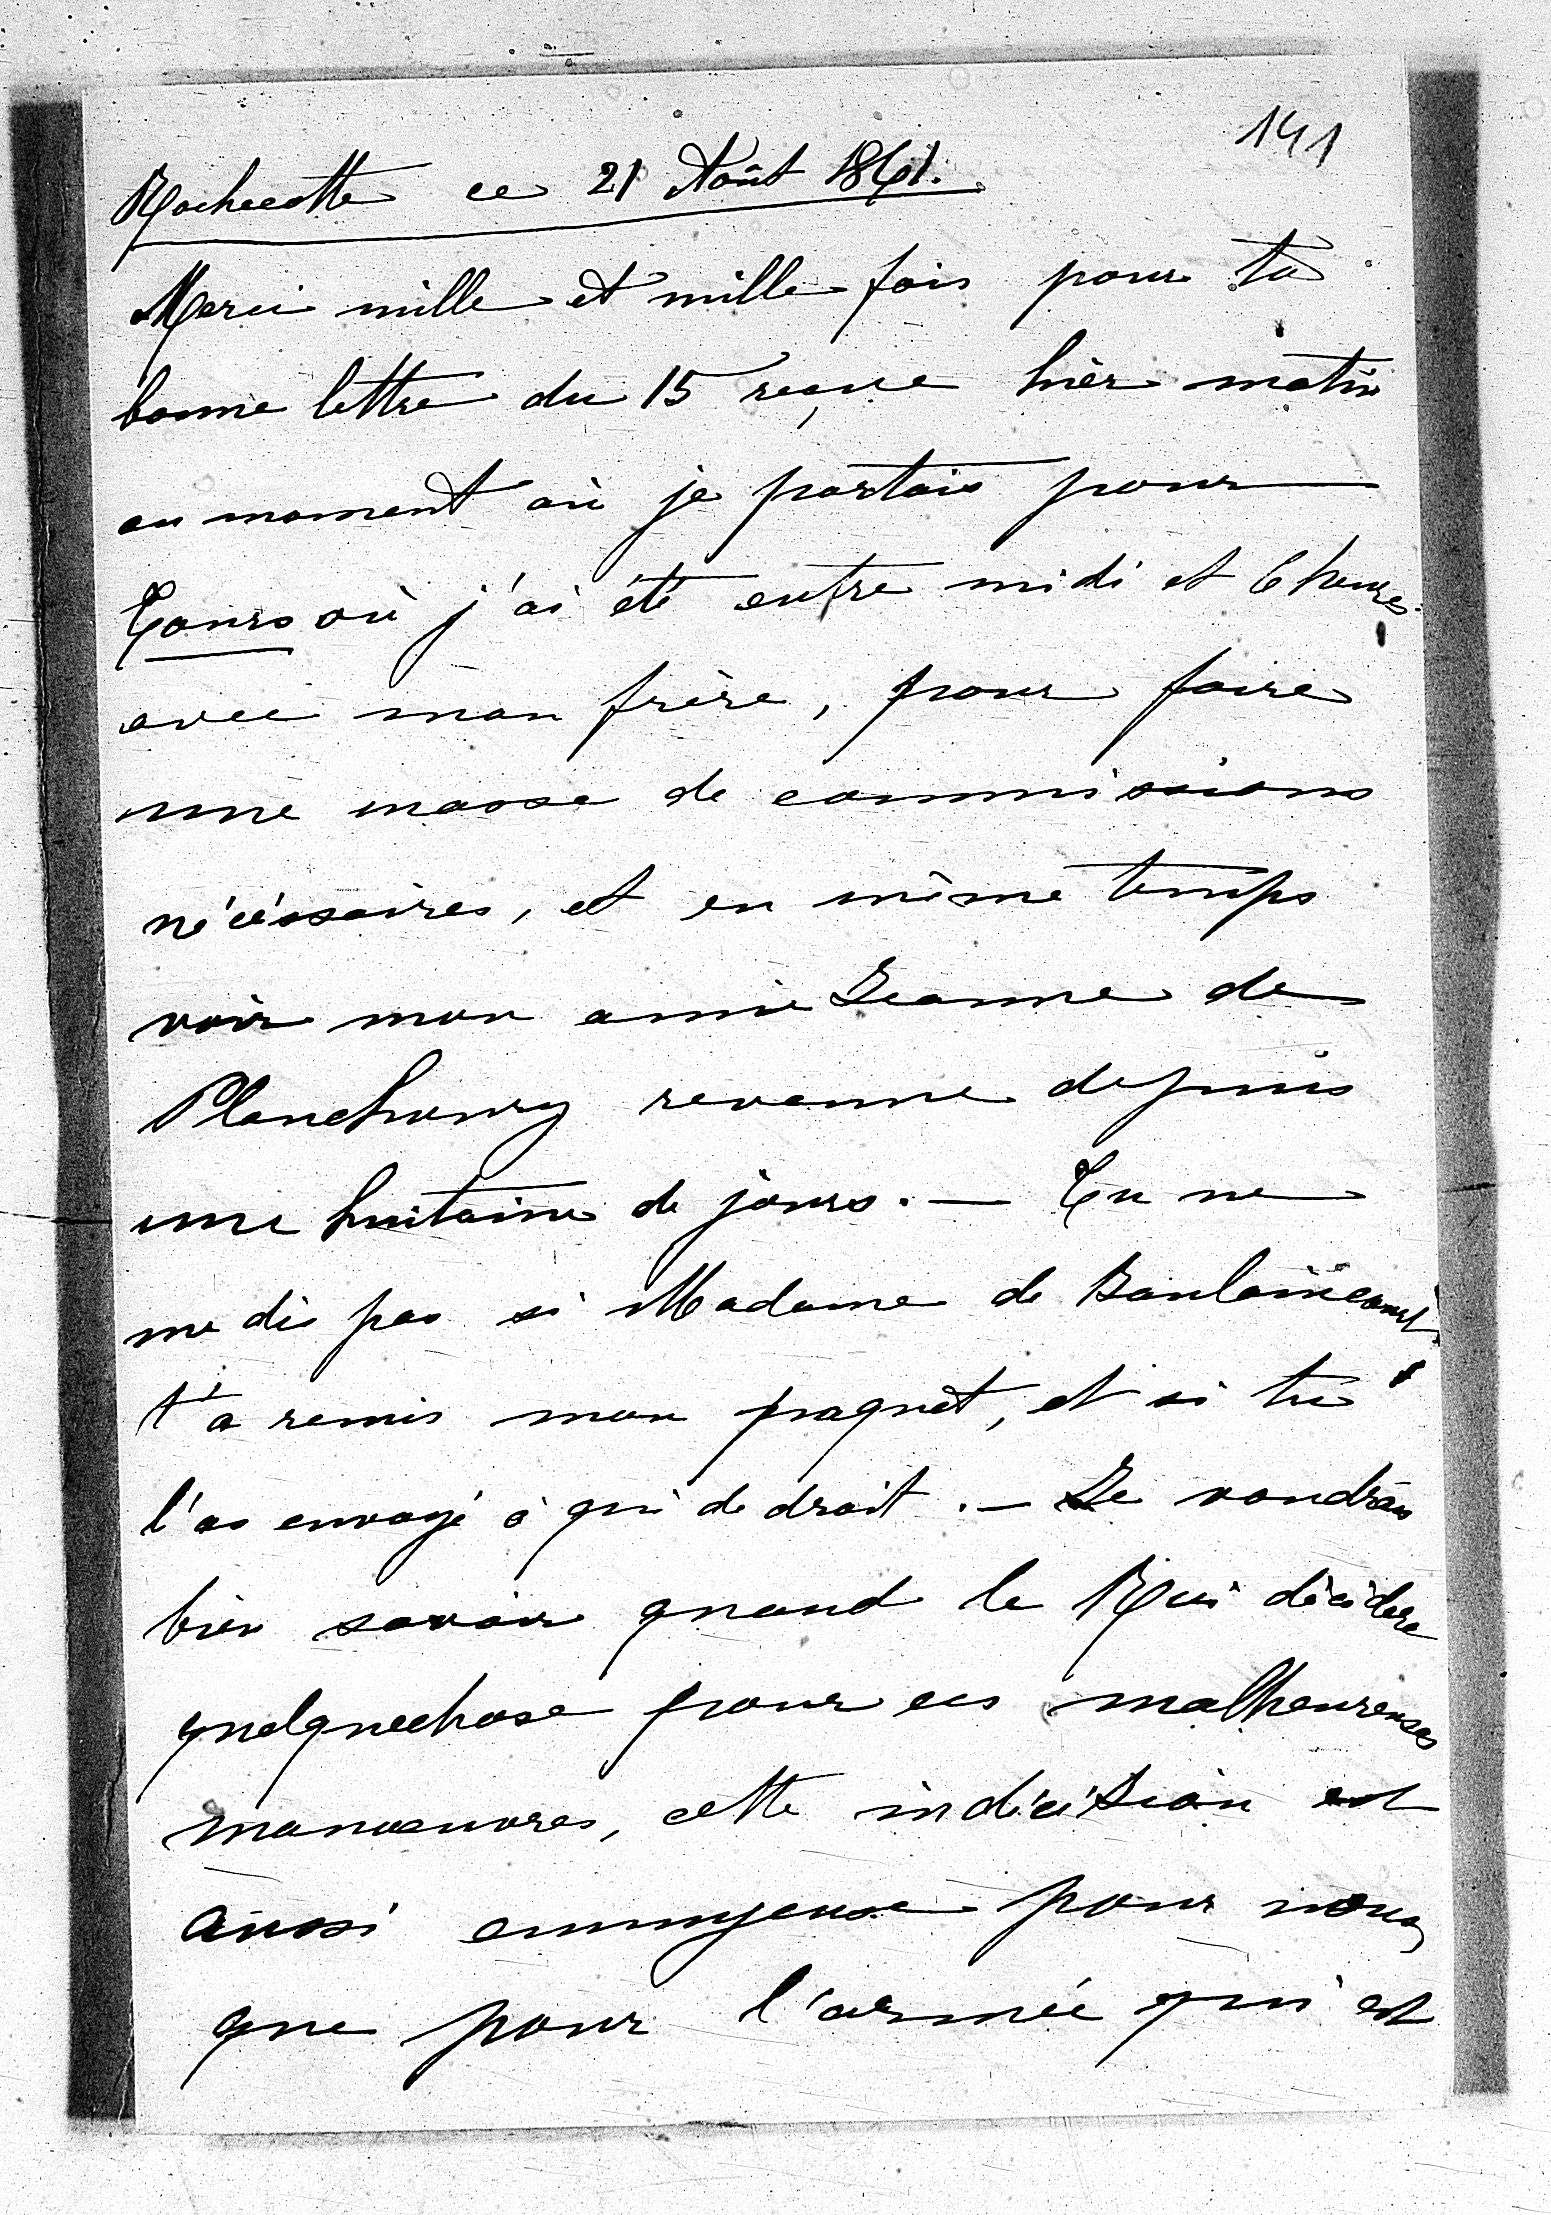 141
Rochecotte ce 21 Août 1861.
Merci mille et mille fois pour ta
bonne lettre du 15 reçue hièr matin
au moment où je partais pour
Tours où j'ai été entre midi et 6 heures
avec mon frère, pour faire
une masse de commissions
nécéssaires, et en même temps
voir mon amie Jeanne de
Planchoury revenue depuis
une huitaine de jours. — Tu ne
me dis pas si Madame de
t'a remis mon paquet, et si tu
l'as envoyé à qui de droit. — Je voudrais
bien savoir quand le Roi décidera
quelquechose pour ces malheureuses
manœuvres, cette indécision est
aussi ennuyeuse pour nous
que pour l'armée qui est